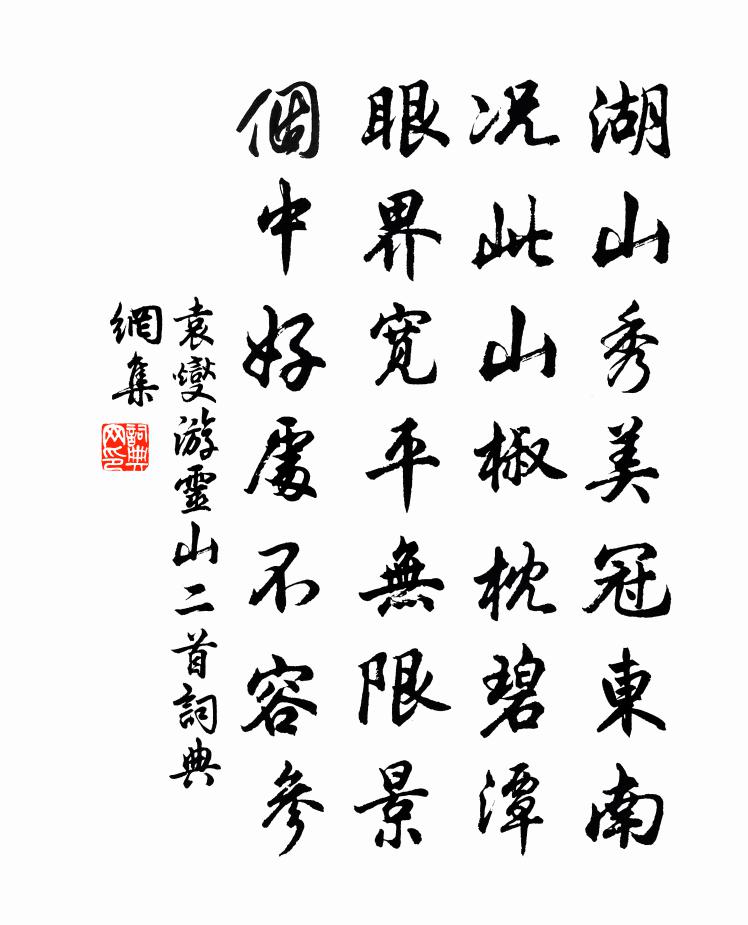 湖山秀美冠東南
况此山椒枕碧潭
眼界寬平無限景
個中好處不容參
袁燮游靈山二首詞典
網集
詞典
网印